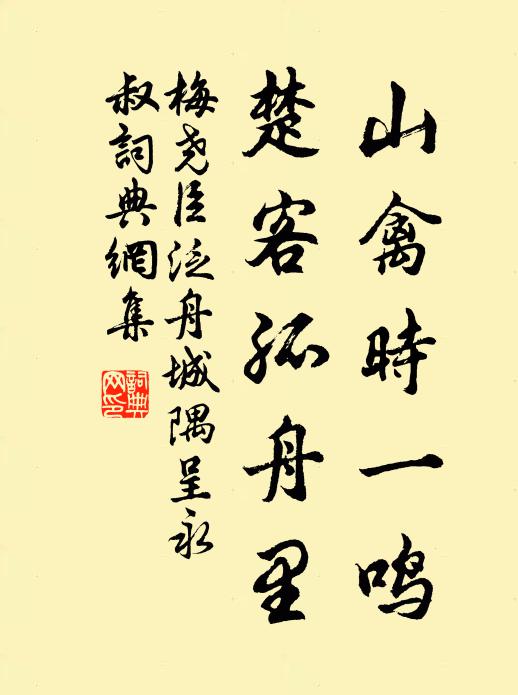 山禽時一鸣
楚客孤舟里
梅尧臣泛舟城隅呈永
叔詞典網集
詞典網印